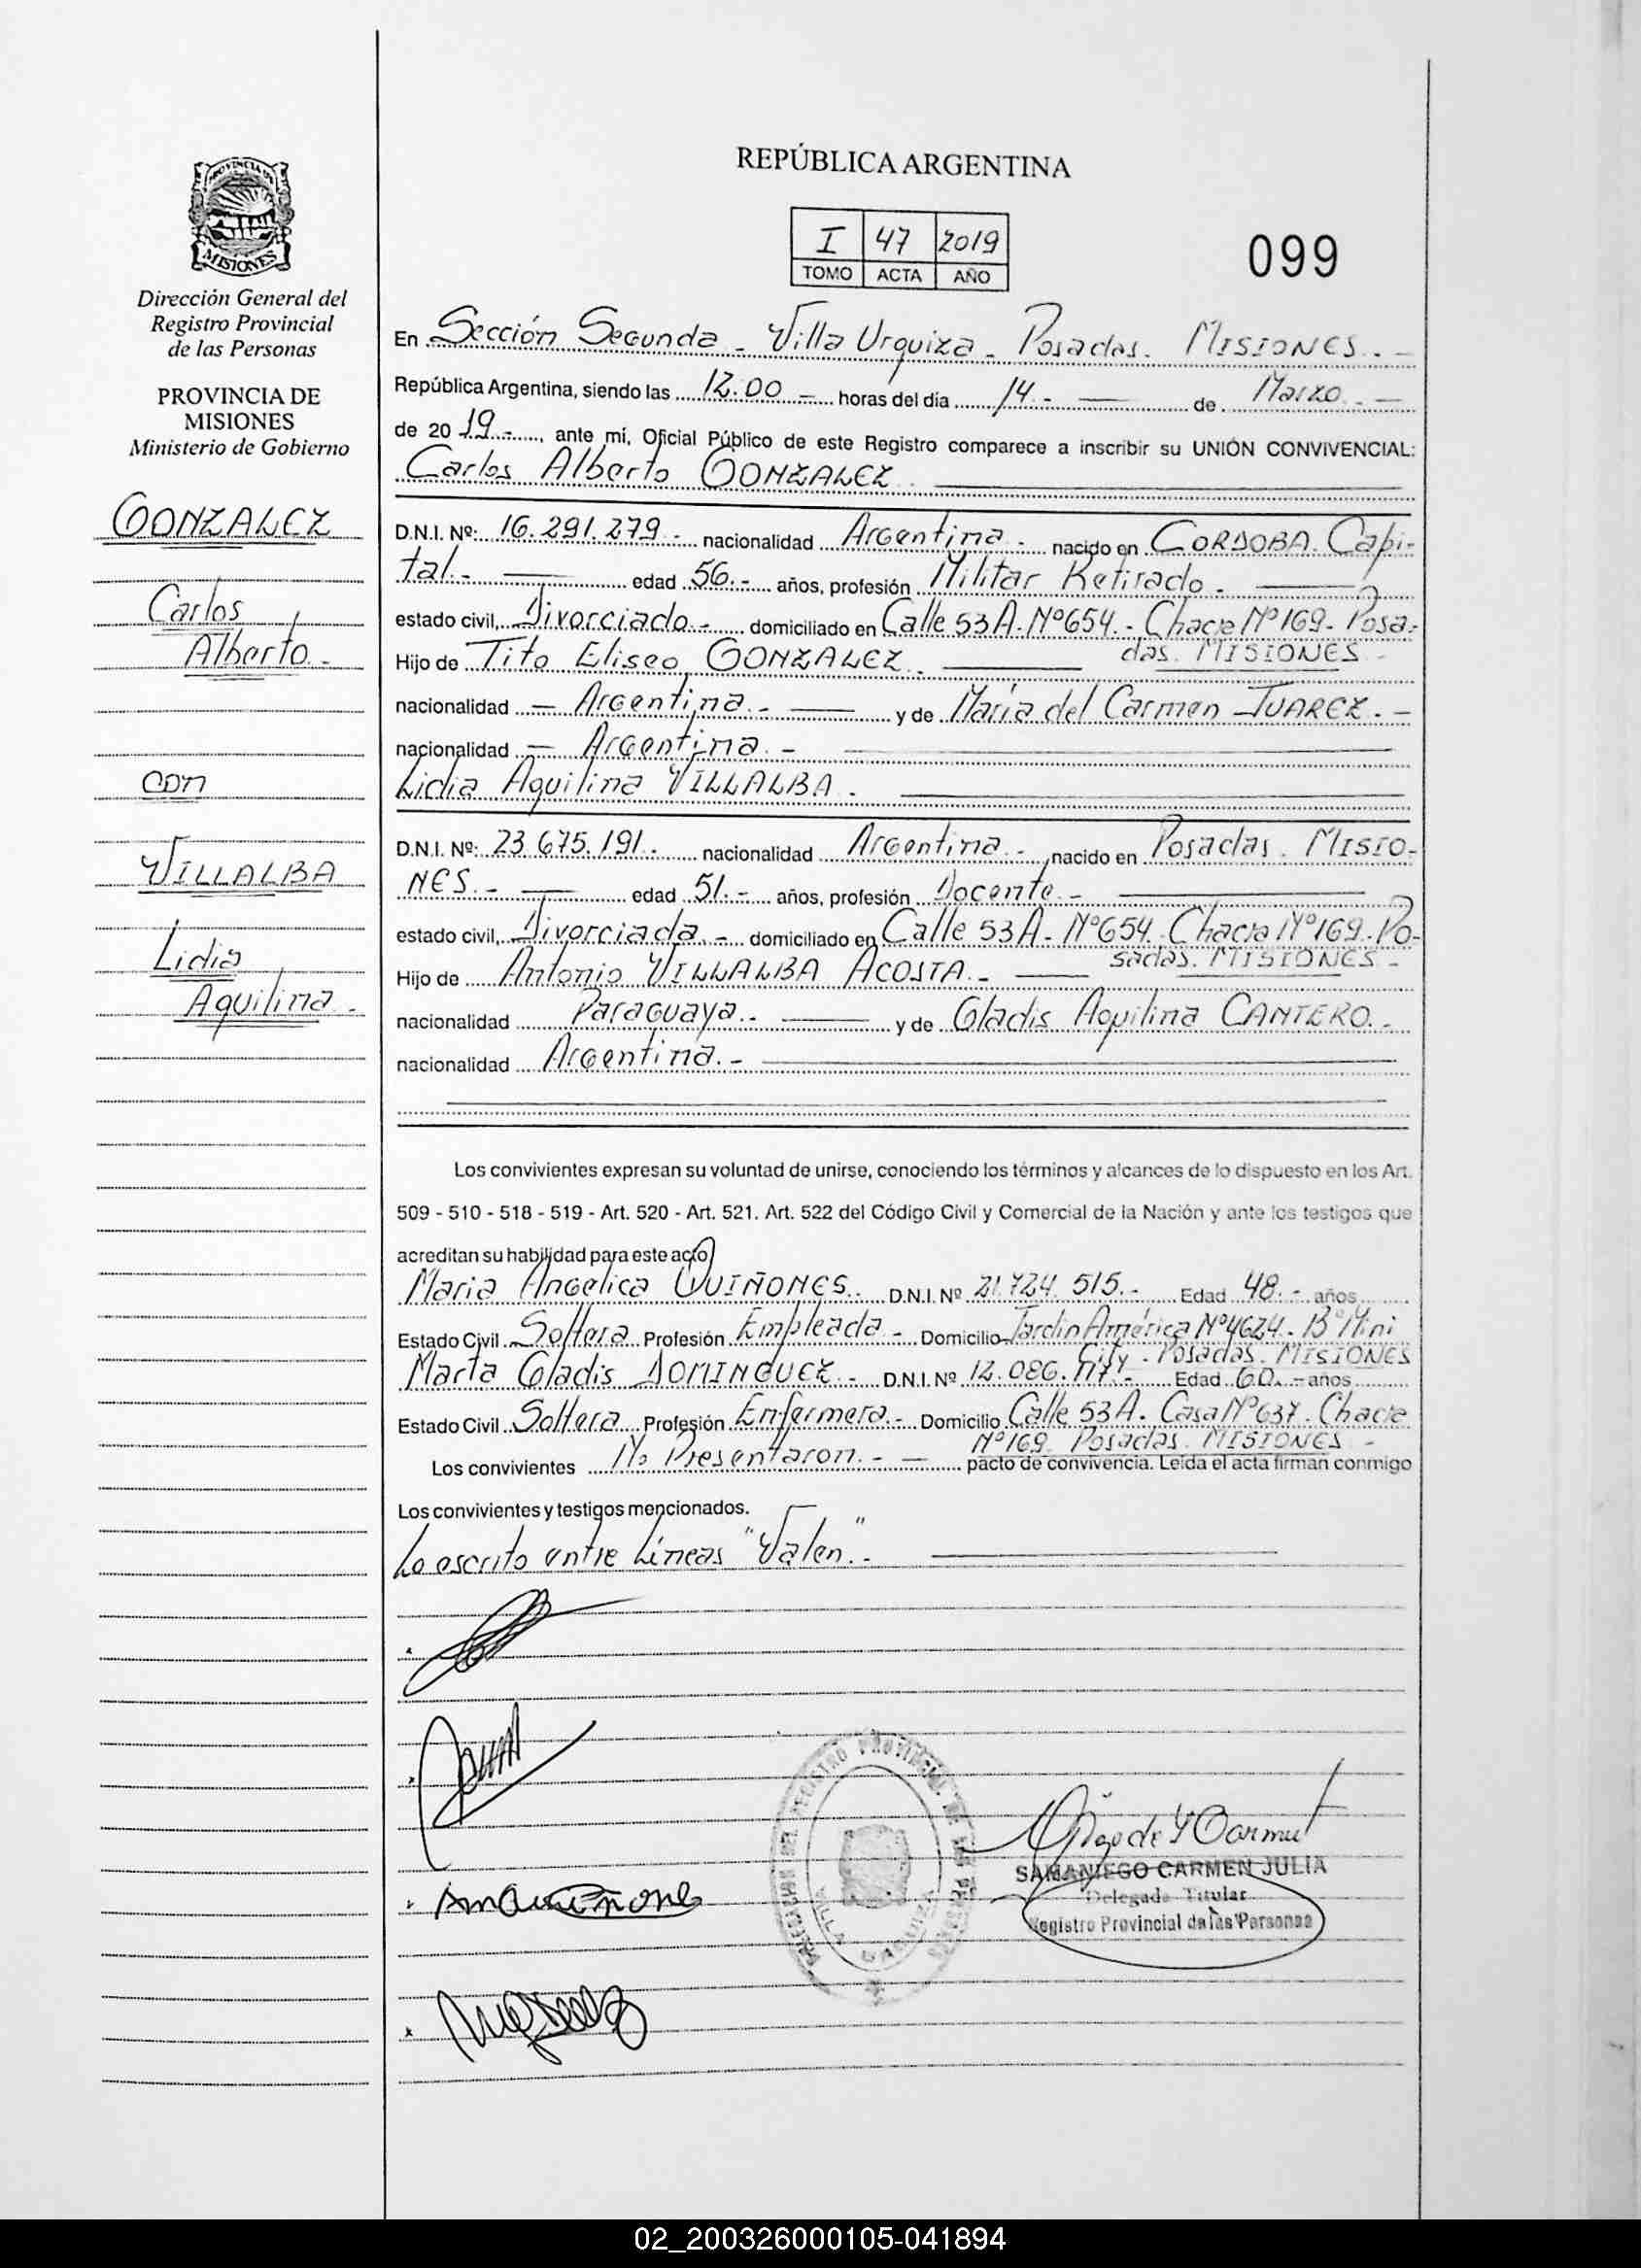 REPÚBLICA ARGENTINA
I 47 2019
TOMO ACTA AÑO
099
PROVINCIA DE
MISIONES
Dirección General del
Registro Provincial
de las Personas
PROVINCIA DE
MISIONES
Ministerio de Gobierno
GONZALEZ
Carlos
Alberto.-
con
VILLALBA
Lidia
Aquilina.-
En Sección Segunda - Villa Urquiza - Posadas. MISIONES.-
República Argentina, siendo las 12.00 - horas del día 14.- de Marzo.-
de 2019.-, ante mí, Oficial Público de este Registro comparece a inscribir su UNIÓN CONVIVENCIAL:
Carlos Alberto GONZALEZ.
D.N.I. Nº: 16.291.279.- nacionalidad Argentina.- nacido en CORDOBA. Capi-
tal.- edad 56.- años, profesión Militar Retirado.-
estado civil, Divorciado.- domiciliado en Calle 53 A. Nº 654.- Chacra Nº 169. Posa-
das. MISIONES.-
Hijo de Tito Eliseo GONZALEZ.-
nacionalidad - Argentina.- y de María del Carmen JUAREZ.-
nacionalidad - Argentina.-
Lidia Aquilina VILLALBA.
D.N.I. Nº: 23.675.191.- nacionalidad Argentina.- nacido en Posadas. MISIO-
NES.- edad 51.- años, profesión Docente.-
estado civil, Divorciada.- domiciliado en Calle 53 A. Nº 654. Chacra Nº 169. Po-
sadas. MISIONES.-
Hijo de Antonio VILLALBA ACOSTA.-
nacionalidad Paraguaya.- y de Gladis Aquilina CANTERO.-
nacionalidad Argentina.-
Los convivientes expresan su voluntad de unirse, conociendo los términos y alcances de lo dispuesto en los Art.
509 - 510 - 518 - 519 - Art. 520 - Art. 521. Art. 522 del Código Civil y Comercial de la Nación y ante los testigos que
acreditan su habilidad para este acto
Maria Angelica QUIÑONES. D.N.I. Nº 21.724.515.- Edad 48.- años
Estado Civil Soltera Profesión Empleada.- Domicilio Jardin América Nº 4624. Bº Mini
City. Posadas. MISIONES
Marta Gladis DOMINGUEZ.- D.N.I. Nº 12.086.117.- Edad 60.- años
Estado Civil Soltera Profesión Enfermera.- Domicilio Calle 53 A. Casa Nº 637. Chacra
Nº 169. Posadas. MISIONES.-
Los convivientes No Presentaron.- pacto de convivencia. Leída el acta firman conmigo
Los convivientes y testigos mencionados.
Lo escrito entre Líneas "Valen".-
SAMANIEGO CARMEN JULIA
Delegada Titular
Registro Provincial de las Personas
VILLA URQUIZA
02_200326000105-041894